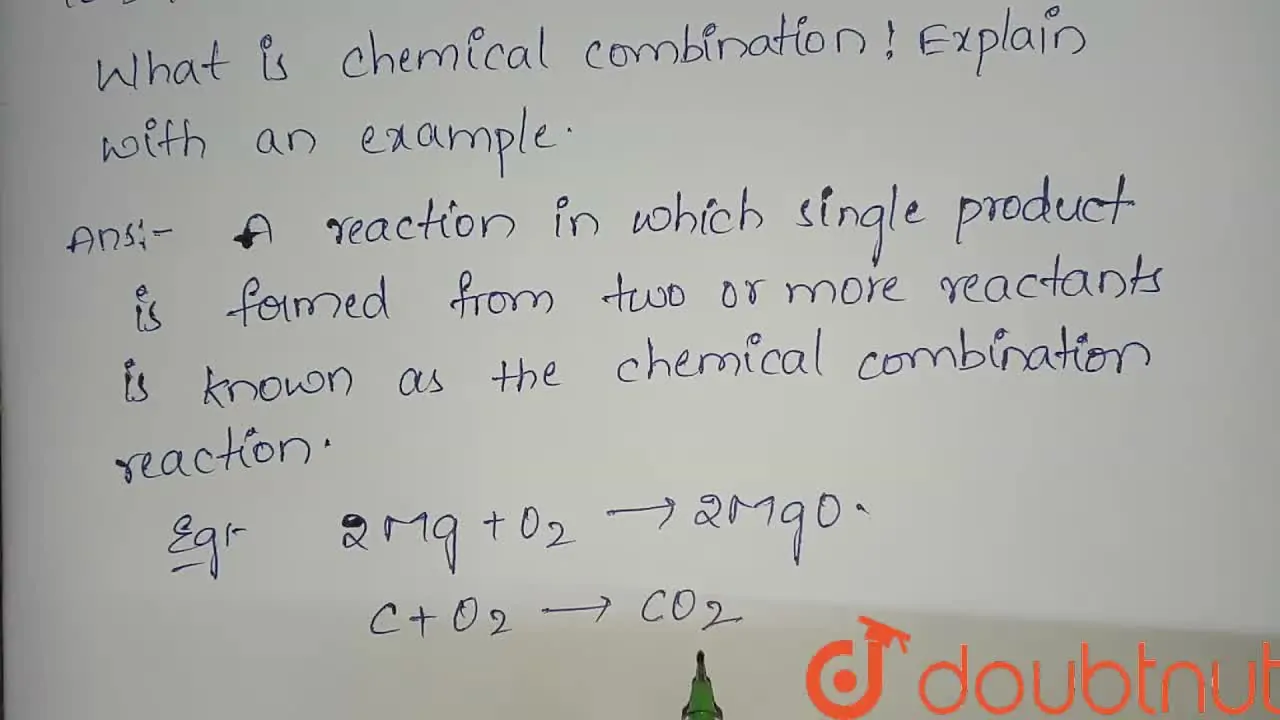 What is chemical combination! Explain
with an example.
Ans:- A reaction in which single product
is formed from two or more reactants
is known as the chemical combination
reaction.
Eg:- 2Mg + O2 → 2MgO.
C + O2 → CO2
doubtnut